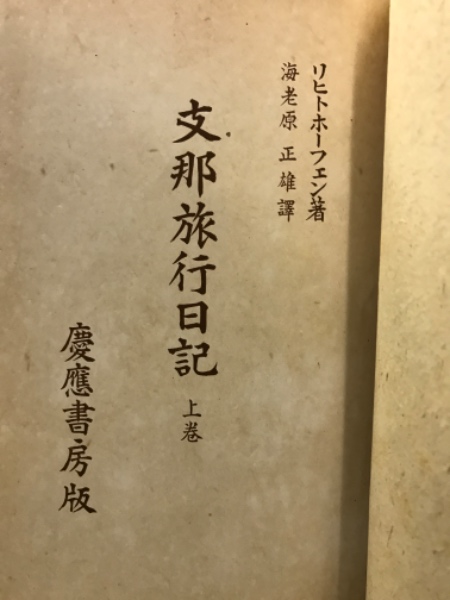 リヒトホーフェン著
海老原正雄譯
支那旅行日記 上卷
慶應書房版